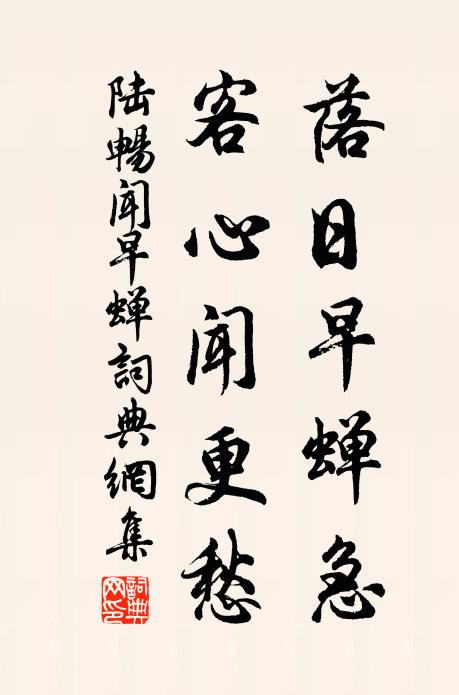 落日早蝉急
客心闻更愁
陆畅闻早蝉詞典網集
詞典网印